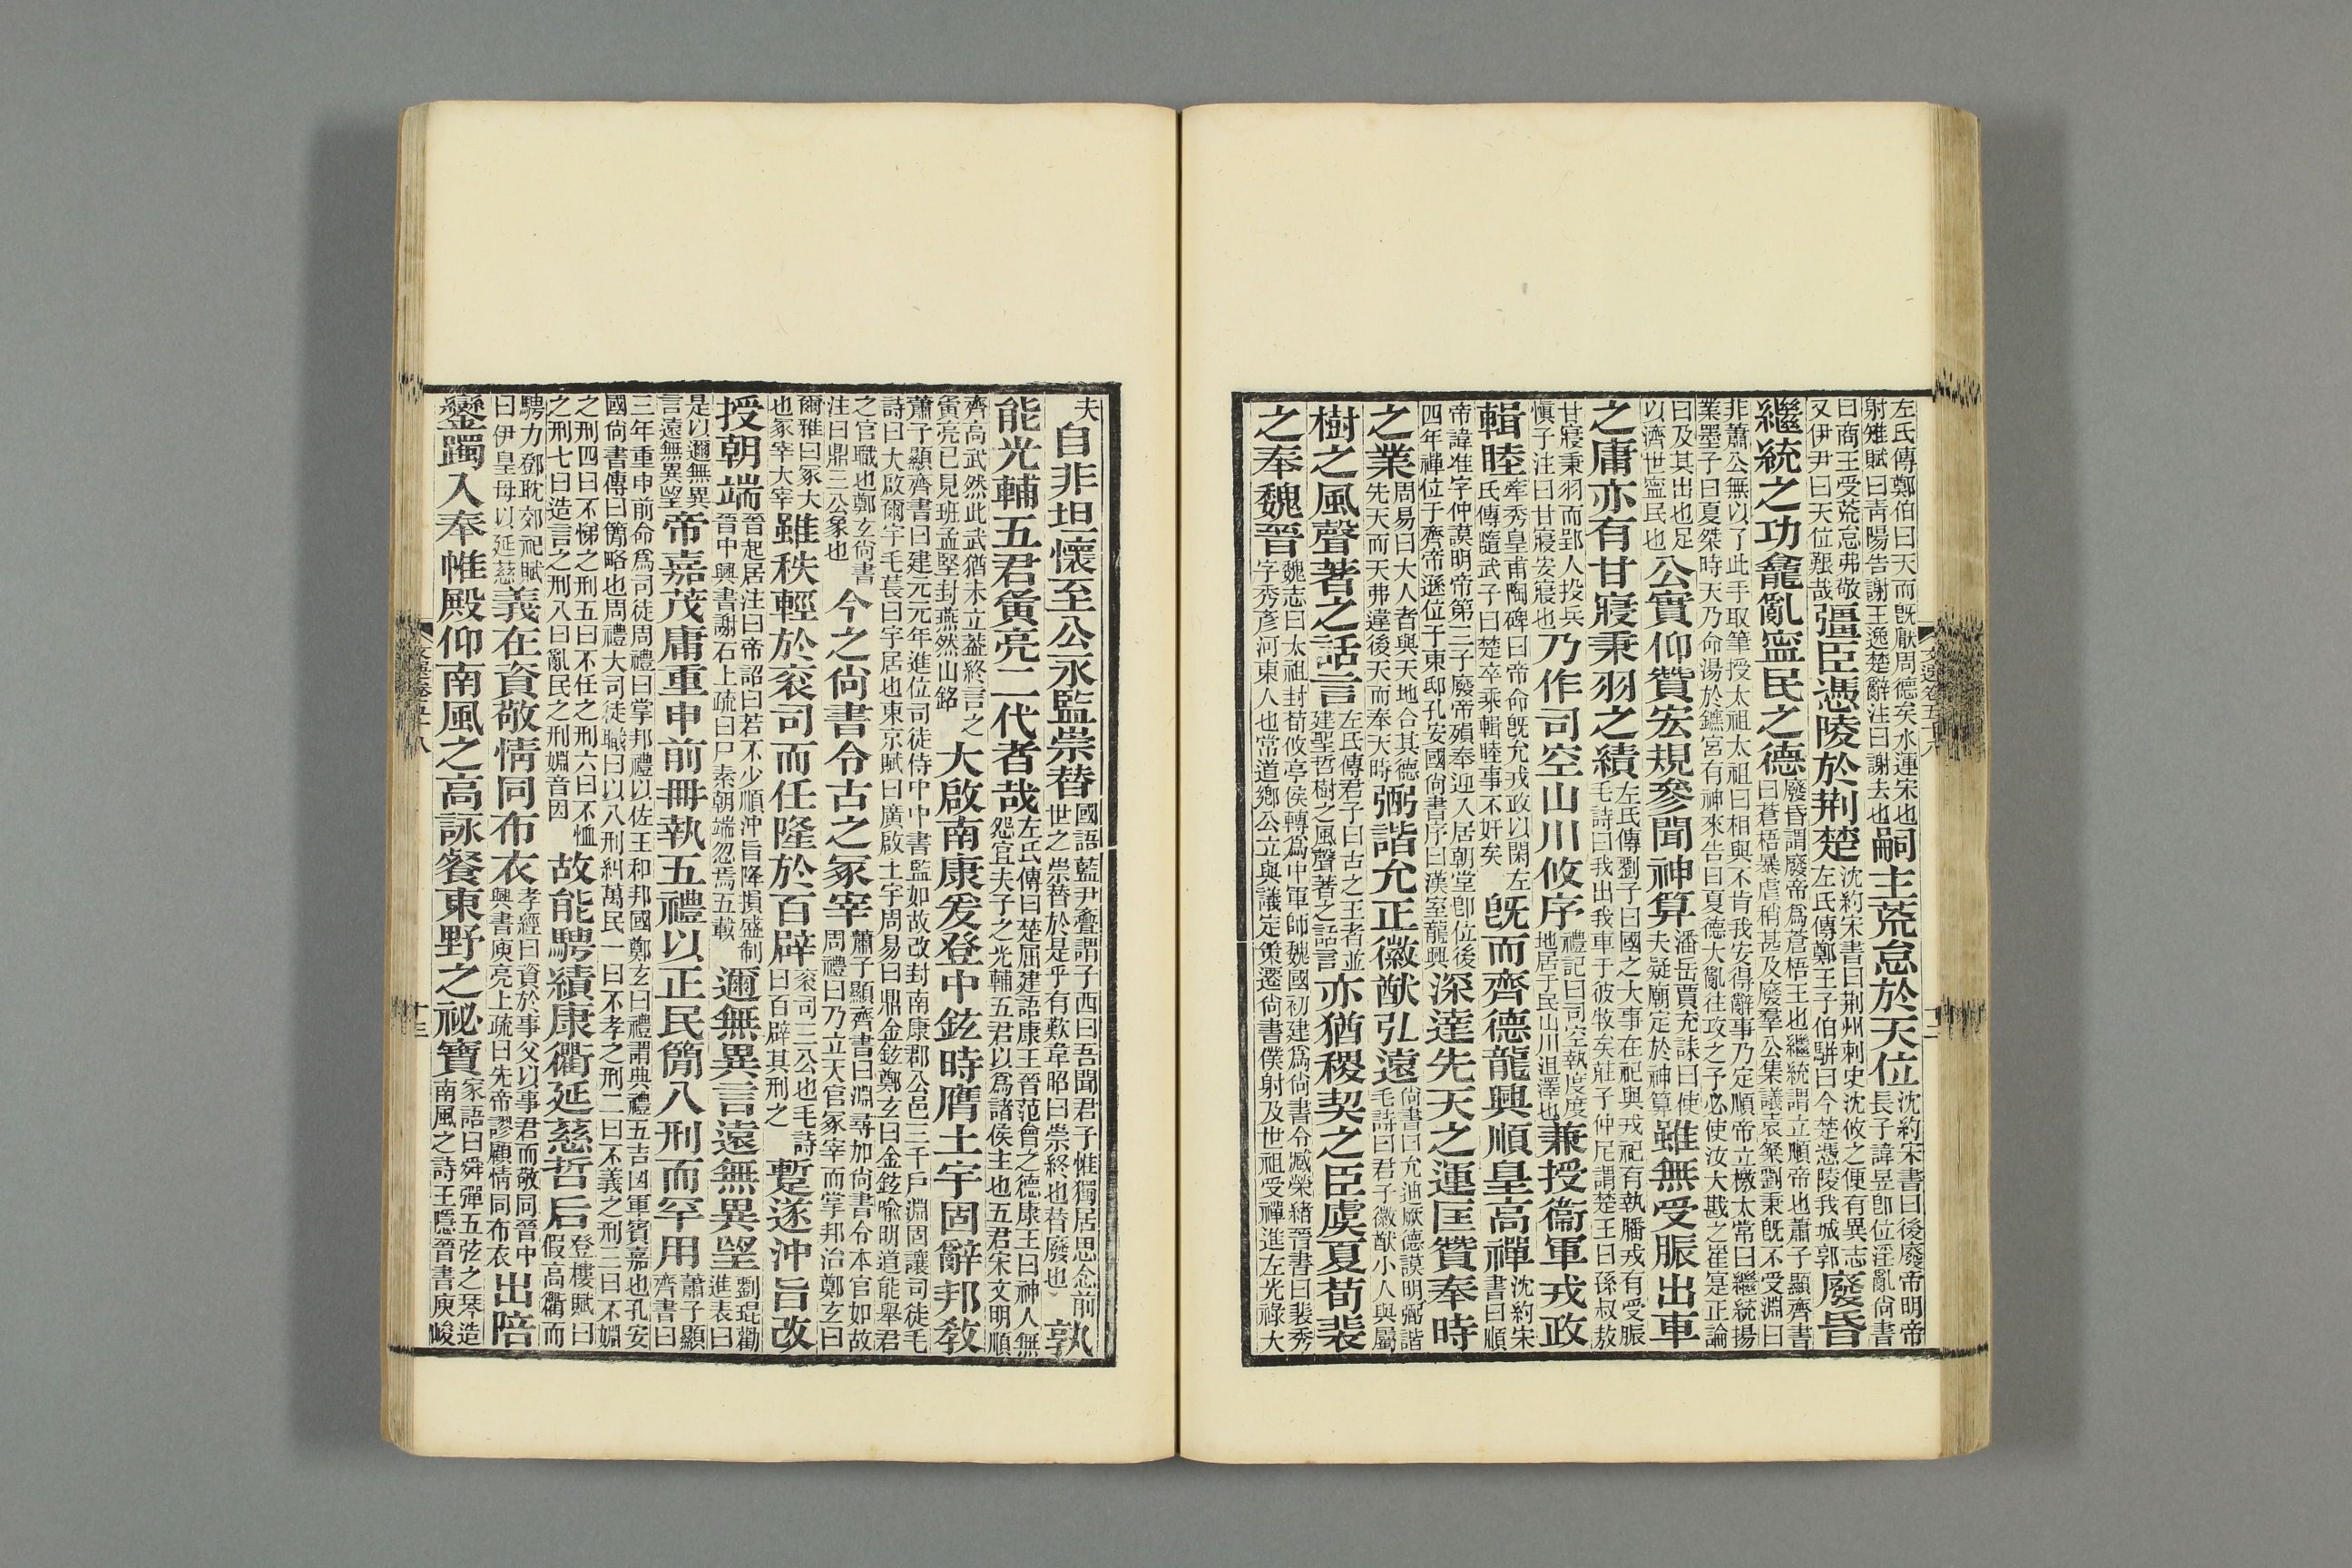 左氏傳鄭伯曰天而旣厭周德矣水運宋也
射雉賦曰靑陽告謝王逸楚辭注曰謝去也
嗣主荒怠於天位
沈約宋書曰後廢帝明帝
長子諱昱卽位淫亂尙書
曰商王受荒怠弗敬
又伊尹曰天位艱哉
彊臣憑陵於荆楚
沈約宋書曰荆州刺史沈攸之便有異志
左氏傳鄭王子伯騈曰今楚憑陵我城郭
廢昏
繼統之功龕亂寍民之德
廢昏謂廢帝爲蒼梧王也繼統謂立順帝也蕭子顯齊書
曰蒼梧暴虐稍甚及廢羣公集議袁粲劉秉旣不受淵曰
非蕭公無以了此手取筆授太祖太祖曰相與不肯我安得辭事乃定順帝立檄太常曰繼統揚
業墨子曰夏桀時天乃命湯於鑣宮有神來告曰夏德大亂往攻之予必使汝大戡之崔寔正論
曰及其出也足
以濟世寍民也
公實仰贊宏規參聞神算
潘岳賈充誄曰使
夫疑廟定於神算
雖無受脤出車
之庸亦有甘寢秉羽之績
左氏傳劉子曰國之大事在祀與戎祀有執膰戎有受脤
毛詩曰我出我車于彼牧矣莊子仲尼謂楚王曰孫叔敖
甘寢秉羽而郢人投兵
愼子注曰甘寢安寢也
乃作司空山川攸序
禮記曰司空執度度
地居于民山川沮澤也
兼授衞軍戎政
輯睦
牽秀皇甫陶碑曰帝命旣允戎政以閑左
氏傳隨武子曰楚卒乘輯睦事不奸矣
旣而齊德龍興順皇高禪
沈約宋
書曰順
帝諱准字仲謨明帝第三子廢帝殞奉迎入居朝堂卽位後
四年禪位于齊帝遜位于東邸孔安國尙書序曰漢室龍興
深達先天之運匡贊奉時
之業
周易曰大人者與天地合其德
先天而天弗違後天而奉天時
弼諧允正徽猷弘遠
尙書曰允迪厥德謨明弼諧
毛詩曰君子徽猷小人與屬
樹之風聲著之話言
左氏傳君子曰古之王者並
建聖哲樹之風聲著之話言
亦猶稷契之臣虞夏荀裴
之奉魏晉
魏志曰太祖封荀攸亭侯轉爲中軍師魏國初建爲尙書令臧榮緖晉書曰裴秀
字秀彥河東人也常道鄉公立與議定策遷尙書僕射及世祖受禪進左光祿大
夫
自非坦懷至公永監崇替
國語藍尹亹謂子西曰吾聞君子惟獨居思念前
世之崇替於是乎有歎韋昭曰崇終也替廢也
孰
能光輔五君寅亮二代者哉
左氏傳曰楚屈建語康王晉范會之德康王曰神人無
怨宜夫子之光輔五君以爲諸侯主也五君宋文明順
齊高武然此武猶未立蓋終言之
寅亮已見班孟堅封燕然山銘
大啟南康爰登中鉉時膺土宇固辭邦敎
蕭子顯齊書曰建元元年進位司徒侍中中書監如故改封南康郡公邑三千戶淵固讓司徒毛
詩曰大啟爾宇毛萇曰宇居也東京賦曰廣啟土宇周易曰鼎金鉉鄭玄曰金鉉喩明道能舉君
之官職也鄭玄尙書
注曰鼎三公象也
今之尙書令古之冢宰
蕭子顯齊書曰淵尋加尙書令本官如故
周禮曰乃立天官冢宰而掌邦治鄭玄曰
爾雅曰冢大
也冢宰大宰
雖秩輕於袞司而任隆於百辟
袞司三公也毛詩
曰百辟其刑之
暫遂沖旨改
授朝端
晉起居注曰帝詔曰若不少順沖旨降損盛制
晉中興書謝石上疏曰尸素朝端忽焉五載
邇無異言遠無異望
劉琨勸
進表曰
是以邇無異
言遠無異望
帝嘉茂庸重申前冊執五禮以正民簡八刑而罕用
蕭子顯
齊書曰
三年重申前命爲司徒周禮曰掌邦禮以佐王和邦國鄭玄曰禮謂典禮五吉凶軍賓嘉也孔安
國尙書傳曰簡略也周禮大司徒職曰以八刑糾萬民一曰不孝之刑二曰不義之刑三曰不婣
之刑四曰不悌之刑五曰不任之刑六曰不恤
之刑七曰造言之刑八曰亂民之刑婣音因
故能騁績康衢延慈哲后
登樓賦曰
假高衢而
騁力鄧耽郊祀賦
曰伊皇母以延慈
義在資敬情同布衣
孝經曰資於事父以事君而敬同晉中
興書庾亮上疏曰先帝謬顧情同布衣
出陪
鑾躅入奉帷殿仰南風之高詠餐東野之祕寶
家語曰舜彈五弦之琴造
南風之詩王隱晉書庾峻